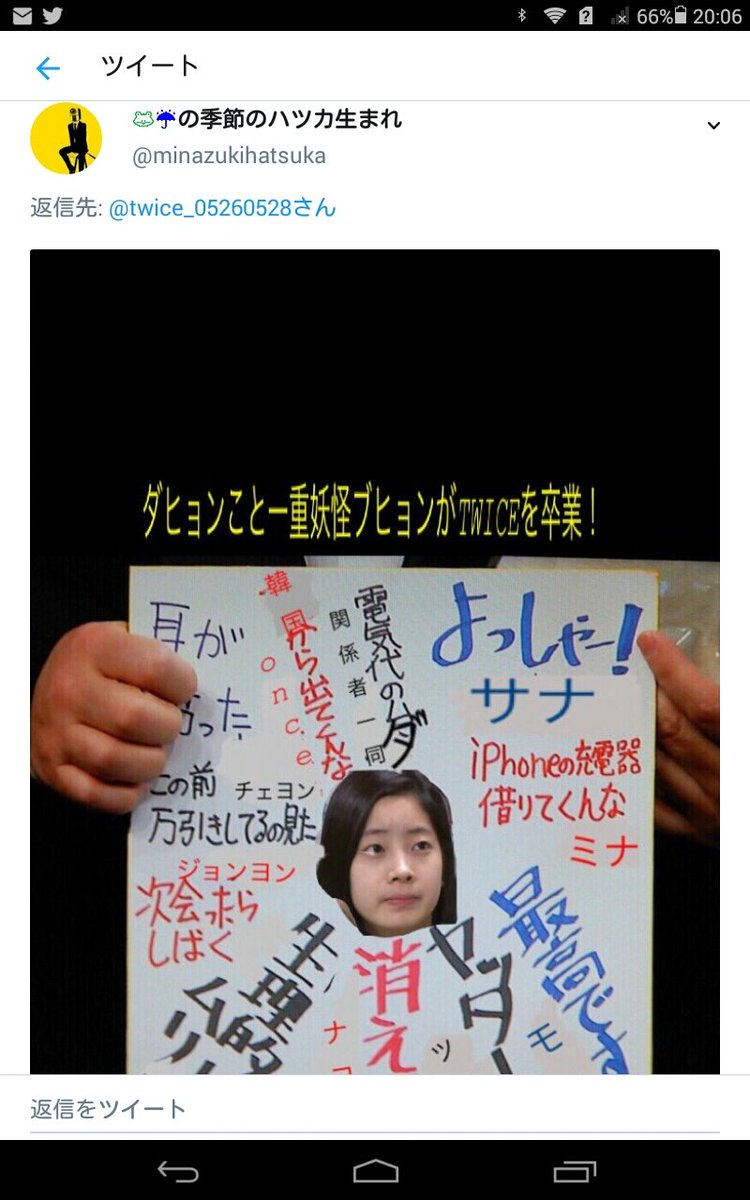 66% 20:06
ツイート
の季節のハツカ生まれ
@minazukihatsuka
返信先: @twice_05260528さん
ダヒョンこと一重妖怪ブヒョンがTWICEを卒業！
よっしゃー!
サナ
電気代のムダ
関係者一同
韓国から出てくんな
once
耳が
った
iPhoneの充電器
借りてくんな
ミナ
この前
万引きしてるの見た
チェヨン
ジョンヨン
次会ったら
しばく
最高です
モ
ヤッター
ツ
消え
ナ
生理的
ムリ
返信をツイート